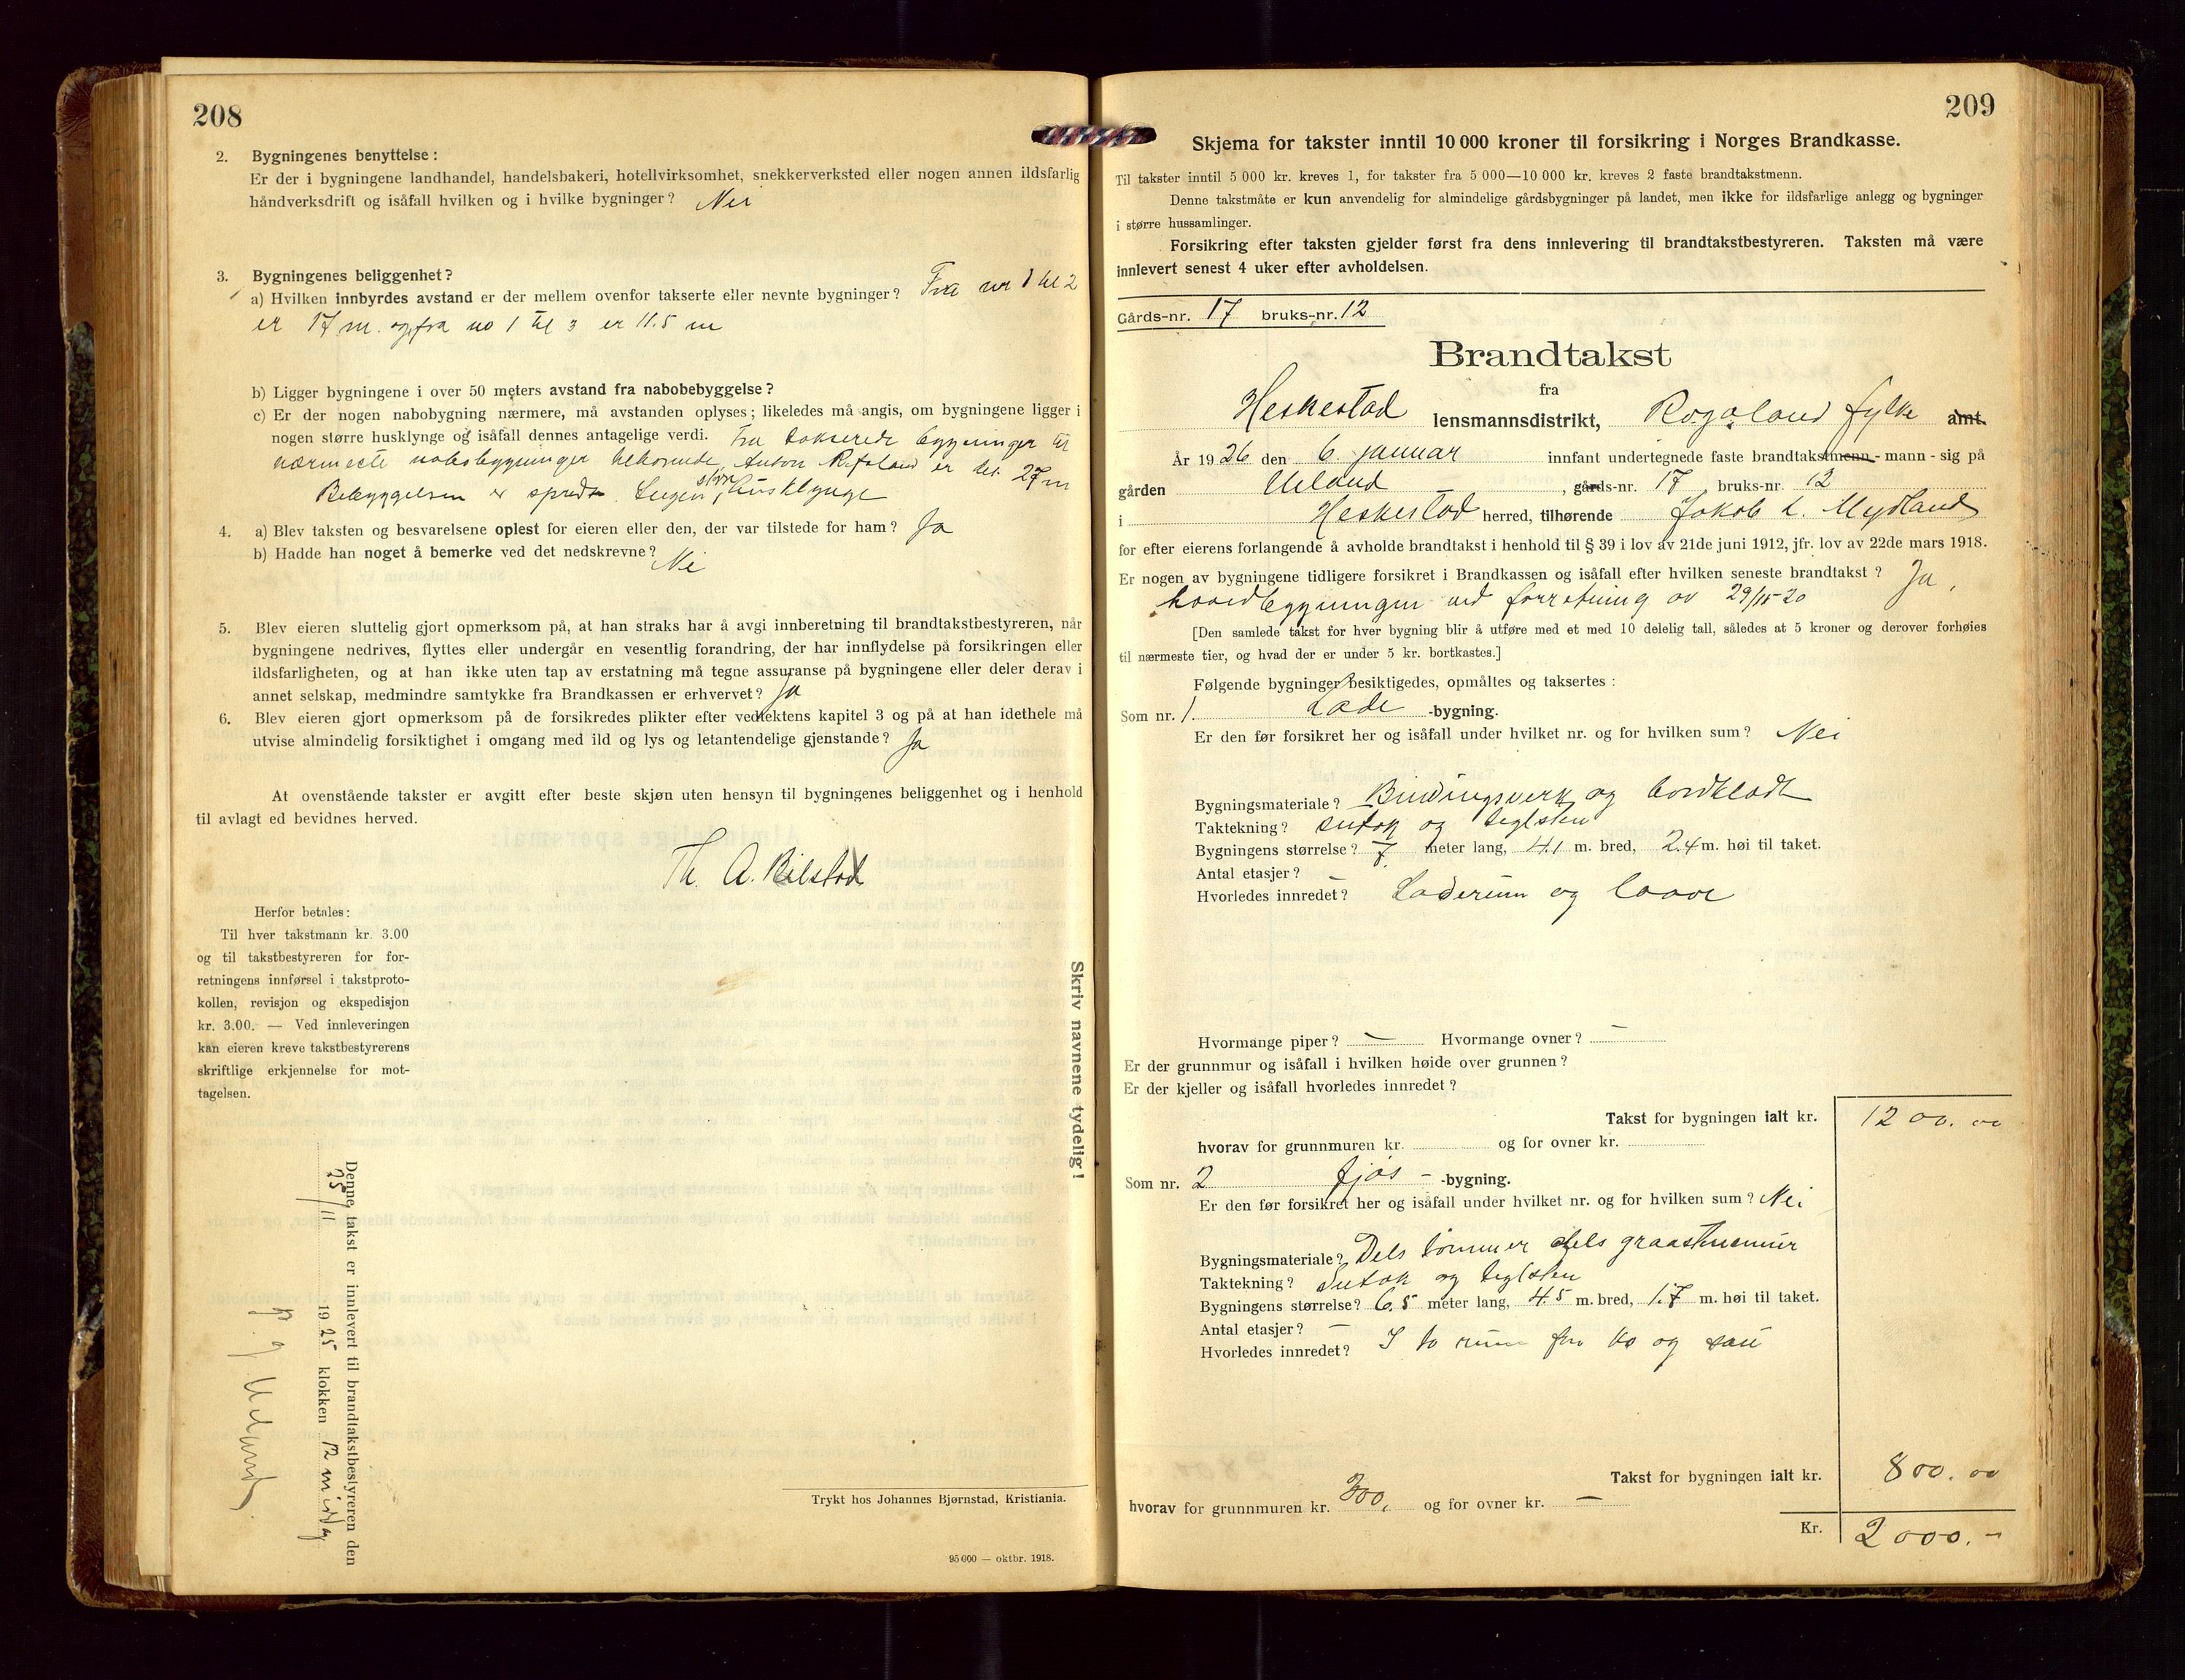 208
2. Bygningenes benyttelse:
Er der i bygningene landhandel, handelsbakeri, hotellvirksomhet, snekkerverksted eller nogen annen ildsfarlig
håndverksdrift og isåfall hvilken og i hvilke bygninger? Nei
3. Bygningenes beliggenhet?
a) Hvilken innbyrdes avstand er der mellem ovenfor takserte eller nevnte bygninger? Fra nr 1 til 2
er 17 m. og fra no 1 til 3 er 11.5 m
b) Ligger bygningene i over 50 meters avstand fra nabobebyggelse?
c) Er der nogen nabobygning nærmere, må avstanden oplyses; likeledes må angis, om bygningene ligger i
nogen større husklynge og isåfall dennes antagelige verdi. Fra takserede bygninger til
nærmeste nabobygninger tilhørende Anton Refsland er det 27 m
Bebyggelsen er spredt. Ingen større husklynge
4. a) Blev taksten og besvarelsene oplest for eieren eller den, der var tilstede for ham? Ja
b) Hadde han noget å bemerke ved det nedskrevne? Nei
5. Blev eieren sluttelig gjort opmerksom på, at han straks har å avgi innberetning til brandtakstbestyreren, når
bygningene nedrives, flyttes eller undergår en vesentlig forandring, der har innflydelse på forsikringen eller
ildsfarligheten, og at han ikke uten tap av erstatning må tegne assuranse på bygningene eller deler derav i
annet selskap, medmindre samtykke fra Brandkassen er erhvervet? Ja
6. Blev eieren gjort opmerksom på de forsikredes plikter efter vedtektens kapitel 3 og på at han idethele må
utvise almindelig forsiktighet i omgang med ild og lys og letantendelige gjenstande? Ja
At ovenstående takster er avgitt efter beste skjøn uten hensyn til bygningenes beliggenhet og i henhold
til avlagt ed bevidnes herved.
Th. A. Bilstad
Herfor betales:
Til hver takstmann kr. 3.00
og til takstbestyreren for for-
retningens innførsel i takstproto-
kollen, revisjon og ekspedisjon
kr. 3.00. — Ved innleveringen
kan eieren kreve takstbestyrerens
skriftlige erkjennelse for mot-
tagelsen.
Skriv navnene tydelig!
Denne takst er innlevert til brandtakstbestyreren den
25/11 1925 klokken 12 middag
Ueland
Trykt hos Johannes Bjørnstad, Kristiania.
95 000 — oktbr. 1918.
209
Skjema for takster inntil 10 000 kroner til forsikring i Norges Brandkasse.
Til takster inntil 5 000 kr. kreves 1, for takster fra 5 000—10 000 kr. kreves 2 faste brandtakstmenn.
Denne takstmåte er kun anvendelig for almindelige gårdsbygninger på landet, men ikke for ildsfarlige anlegg og bygninger
i større hussamlinger.
Forsikring efter taksten gjelder først fra dens innlevering til brandtakstbestyreren. Taksten må være
innlevert senest 4 uker efter avholdelsen.
Gårds-nr. 17 bruks-nr. 12
Brandtakst
fra
Heskestad lensmannsdistrikt, Rogaland fylke amt.
År 1926 den 6. januar innfant undertegnede faste brandtakstmenn - mann - sig på
gården Ueland, gårds-nr. 17, bruks-nr. 12
i Heskestad herred, tilhørende Jakob L. Mydland
for efter eierens forlangende å avholde brandtakst i henhold til § 39 i lov av 21de juni 1912, jfr. lov av 22de mars 1918.
Er nogen av bygningene tidligere forsikret i Brandkassen og isåfall efter hvilken seneste brandtakst? Ja,
hovedbygningen ved forretning av 29/11-20
[Den samlede takst for hver bygning blir å utføre med et med 10 delelig tall, således at 5 kroner og derover forhøies
til nærmeste tier, og hvad der er under 5 kr. bortkastes.]
Følgende bygninger besiktigedes, opmåltes og taksertes:
Som nr. 1. Lade -bygning.
Er den før forsikret her og isåfall under hvilket nr. og for hvilken sum? Nei
Bygningsmateriale? Bindingsverk og bordkledt
Taktekning? Sutak og teglsten
Bygningens størrelse? 7 meter lang, 4.1 m. bred, 2.4 m. høi til taket.
Antal etasjer? —
Hvorledes innredet? Laderum og laave
Hvormange piper? — Hvormange ovner? —
Er der grunnmur og isåfall i hvilken høide over grunnen?
Er der kjeller og isåfall hvorledes innredet?
Takst for bygningen ialt kr. 1200.00
hvorav for grunnmuren kr. og for ovner kr.
Som nr. 2 fjøs - -bygning.
Er den før forsikret her og isåfall under hvilket nr. og for hvilken sum? Nei
Bygningsmateriale? Dels tømmer dels graastensmur
Taktekning? Sutak og teglsten
Bygningens størrelse? 6.5 meter lang, 4.5 m. bred, 1.7 m. høi til taket.
Antal etasjer? —
Hvorledes innredet? I to rum for ko og sau
Takst for bygningen ialt kr. 800.00
hvorav for grunnmuren kr. 300, og for ovner kr. —
Kr. 2000.-